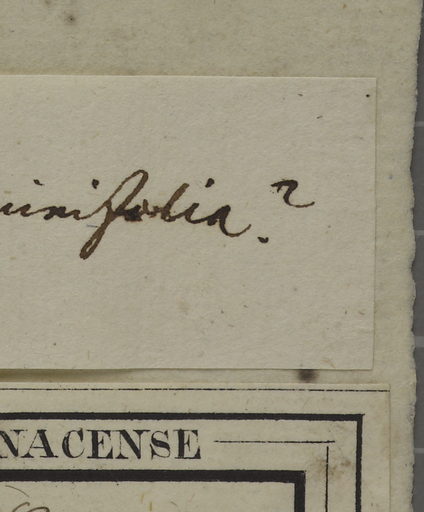 inifolia?
NACENSE